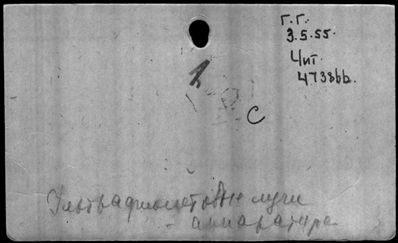 Г.Г.
3.5.55.
Чит.
473866.
С
Ультрафиолетов лучи
- аппаратура